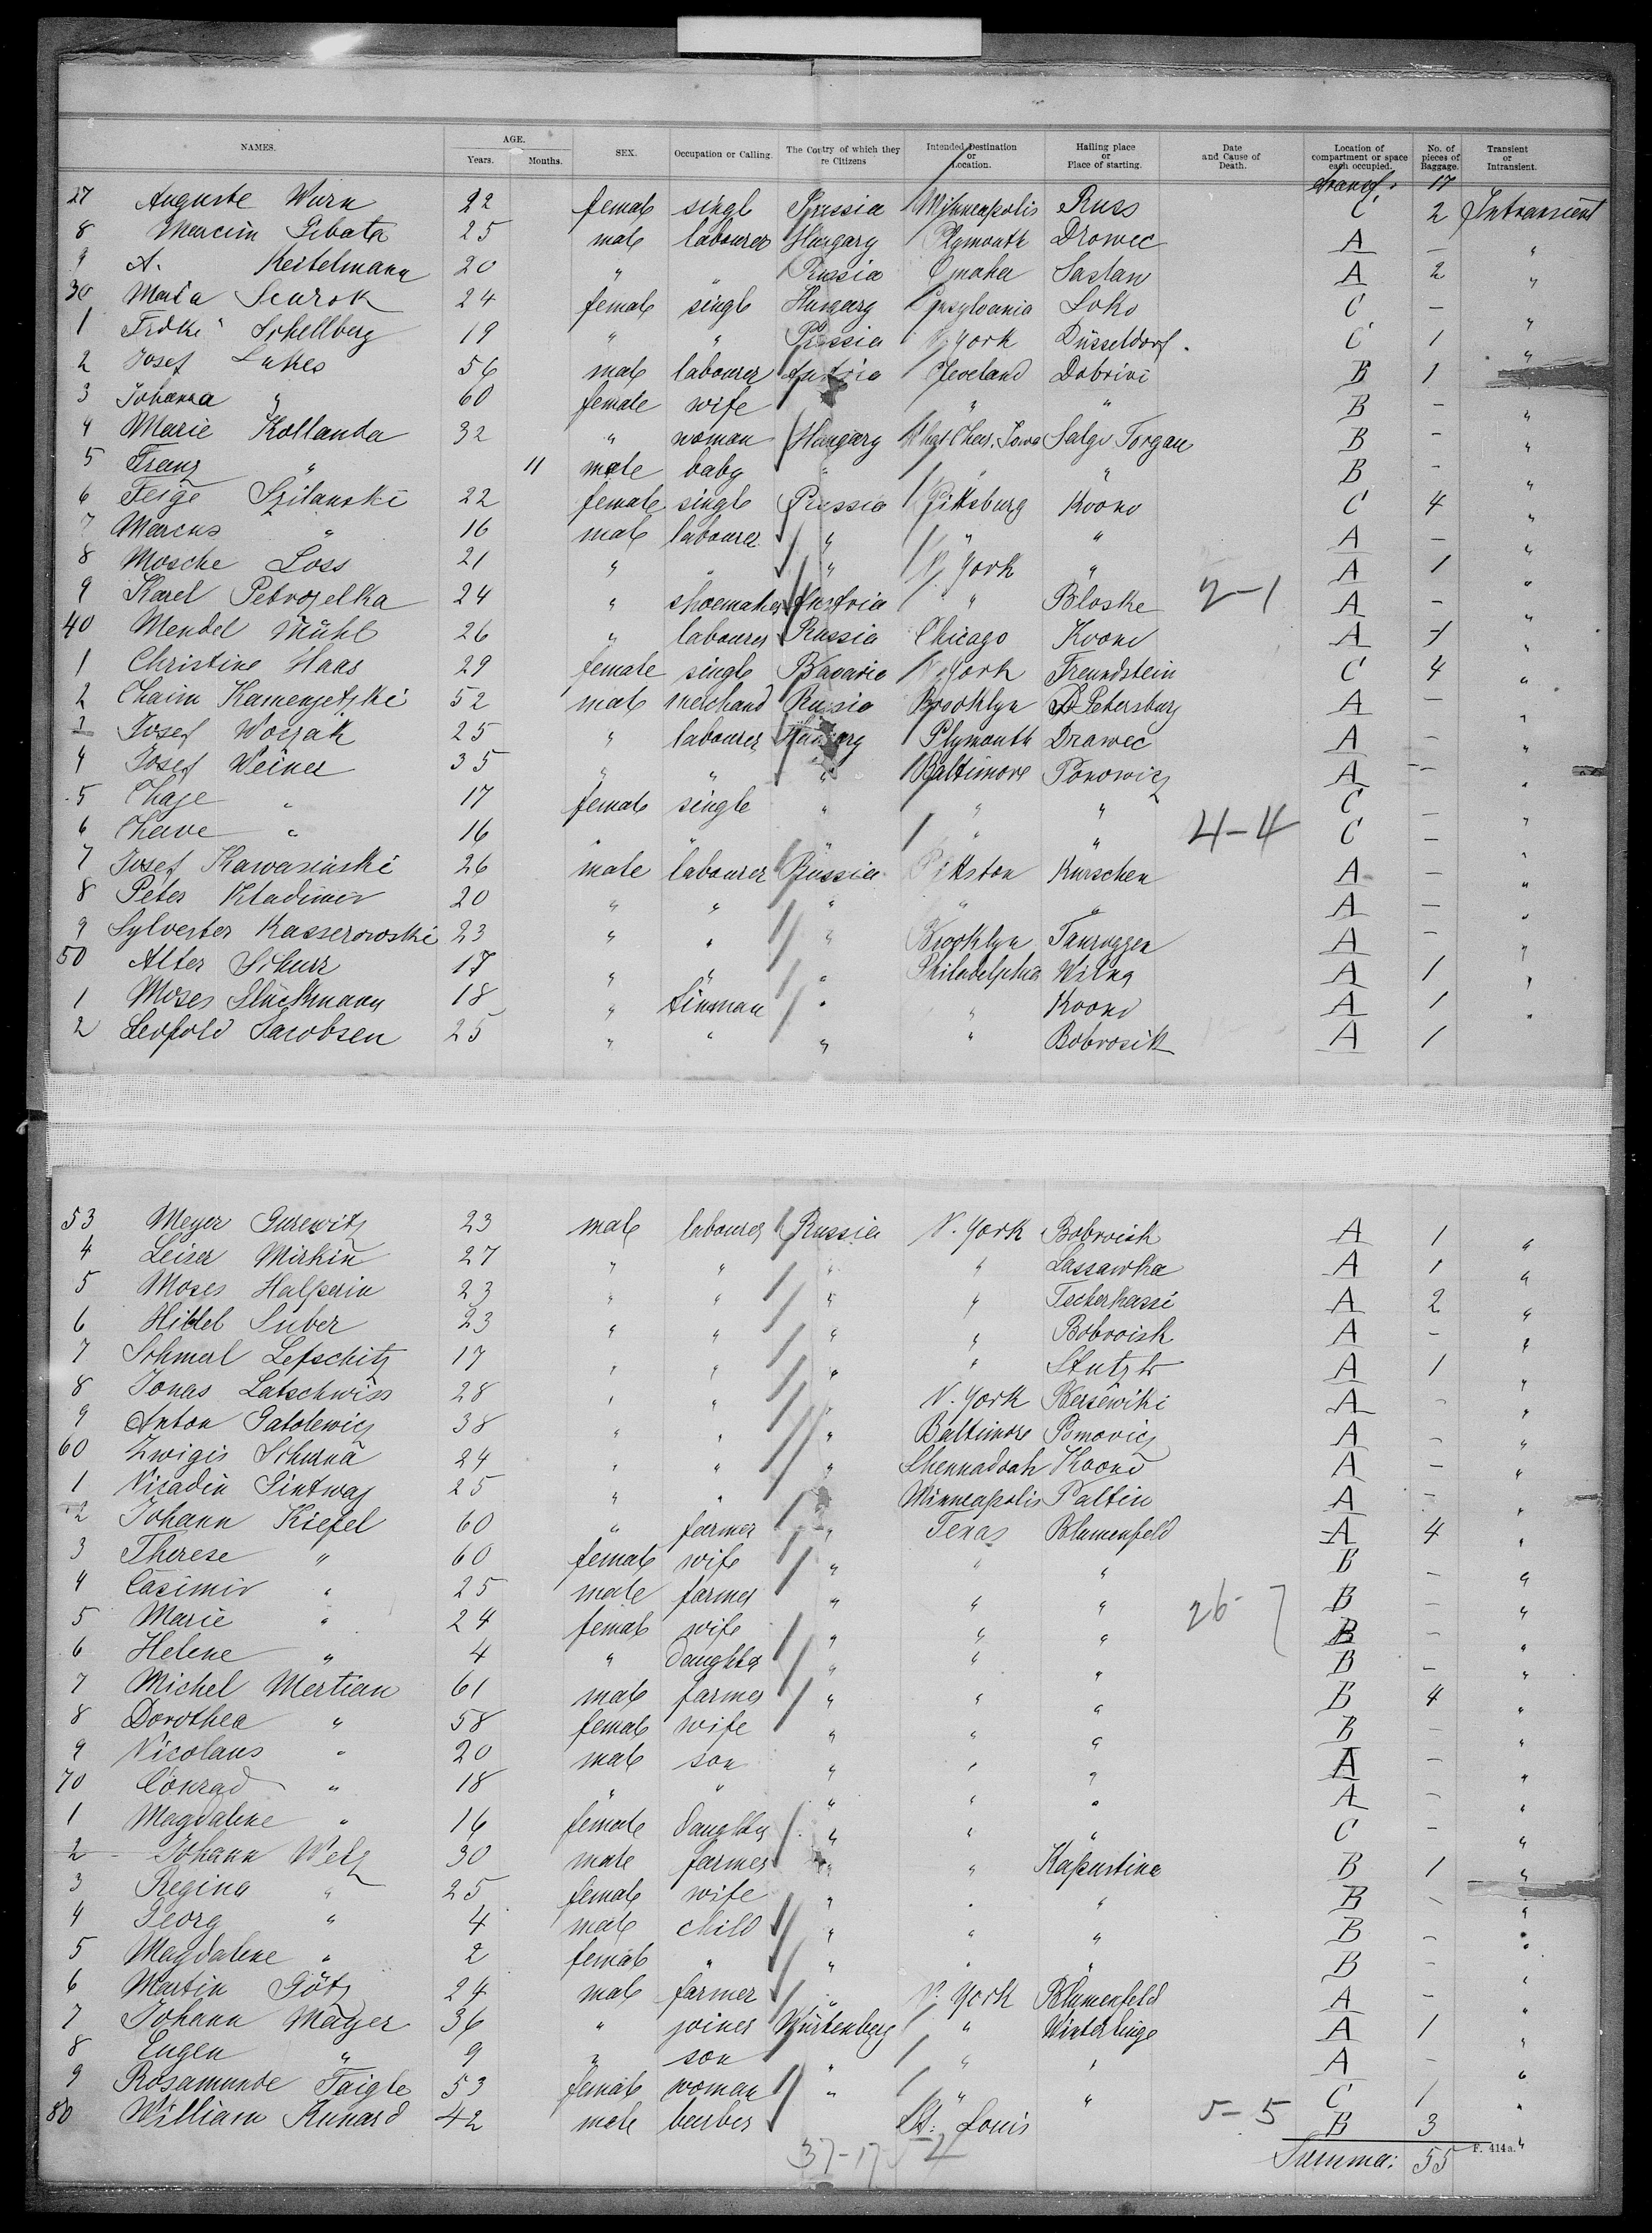 NAMES. AGE. Years. Months. SEX. Occupation or Calling. The Coutry of which they re Citizens Intended Destination or Location. Hailing place or Place of starting. Date and Cause of Death. Location of compartment or space each occupied. No. of pieces of Baggage. Transient or Intransient.
transf. 17
27 Auguste Wurn 22 female singl Prussia Minneapolis Russ C 2 Intransient
8 Marcim Sebata 25 male labourer Hungary Plymouth Drowec A — "
9 A. Keitelmann 20 " " Russia Omaha Saslaw A 2 "
30 Maria 24 female single Hungary Soko C — "
1 Frdke Schellberg 19 " " Prussia N. York Düsseldorf. C 1 "
2 Josef Lukes 56 male labourer Austria Cleveland Dobrivi B 1
3 Johanna " 60 female wife " " B — "
4 Marie Kollanda 32 " woman Hungary Salgo Torgan B — "
5 Franz " 11 male baby " " " B — "
6 Feige Szilanski 22 female single Russia Pittsburg Koono C 4 "
7 Marcus " 16 male labourer " " " A — "
8 Mosche Loss 21 " " " N. York " A 1 "
9 Karel Petrozelka 24 " shoemaker Austria " Bloske 2-1 A — "
40 Mendel Mühl 26 " labourer Russia Chicago Koono A 1 "
1 Christine Haas 29 female single Bavaria N. York Freundstein C 4 "
2 Chaim Kamenjetzki 52 male melchand Russia Brooklyn St Petersburg A — "
3 Josef Worjak 25 " labourer Hungary Plymouth Drawec A — "
4 Josef Weiner 35 " " " Baltimore Ponowicz A — "
5 Chaje " 17 female single " " " C — "
6 Chave " 16 " " " " " 4-4 C — "
7 Josef Kawasinski 26 male labourer Russia Pittston Kurschen A — "
8 Peter Kladimir 20 " " " " " A — "
9 Sylvester Kasserowski 23 " " " Brooklyn Tauroggen A — "
50 Alter Schurr 17 " " " Philadelphia Wilna A 1 "
1 Moses Glückmann 18 " tinman " " Koono A 1 "
2 Leopold Jacobsen 25 " " " " Bobrosik A 1
53 Meyer Gurewitz 23 male labourer Russia N. York Bobroish A 1 "
4 Leiser Mirkin 27 " " " " Lassawka A 1 "
5 Moses Halperin 23 " " " " Tscherkassi A 2 "
6 Hillel Suber 23 " " " " Bobroish A — "
7 Schmerl Lefschitz 17 " " " " Slutzk A 1 "
8 Jonas Latschwiss 28 " " " N. York Keisewiki A — "
9 Anton Gatolewicz 38 " " " Baltimore Ponovicz A — "
60 Zwigis Schurna 24 " " " Shennadoah Koono A — "
1 Nisadin Sintwaz 25 " " Minneapolis Paltin A — "
2 Johann Kiefel 60 " farmer " Texas Blumenfeld A 4 "
3 Therese " 60 female wife " " " B — "
4 Casimir " 25 male farmer " " " B — "
5 Marie " 24 female wife " " " 26 B — "
6 Helene " 4 " daughter " " " B — "
7 Michel Mertian 61 male farmer " " " B 4 "
8 Dorothea " 58 female wife " " " B — "
9 Nicolaus " 20 male son " " " A — "
70 Conrad " 18 " " " " " A — "
1 Magdalene " 16 female daughter " " " C — "
2 Johann Welz 30 male farmer " " Kapustina B 1 "
3 Regina " 25 female wife " " " B — "
4 Georg " 4 male child " " " B — "
5 Magdalene " 2 female " " " " B — "
6 Martin Götz 24 male farmer " N. York Blumenfeld A — "
7 Johann Mayer 36 " joiner Würtenberg " Winterlinge A 1 "
8 Eugen " 9 " son " " " A — "
9 Rosamunde Taigle 53 female woman " " " C 1 "
80 William Kunard 42 male barber St. Louis 5-5 B 3 "
37-17 Summa: 55 F. 414a.